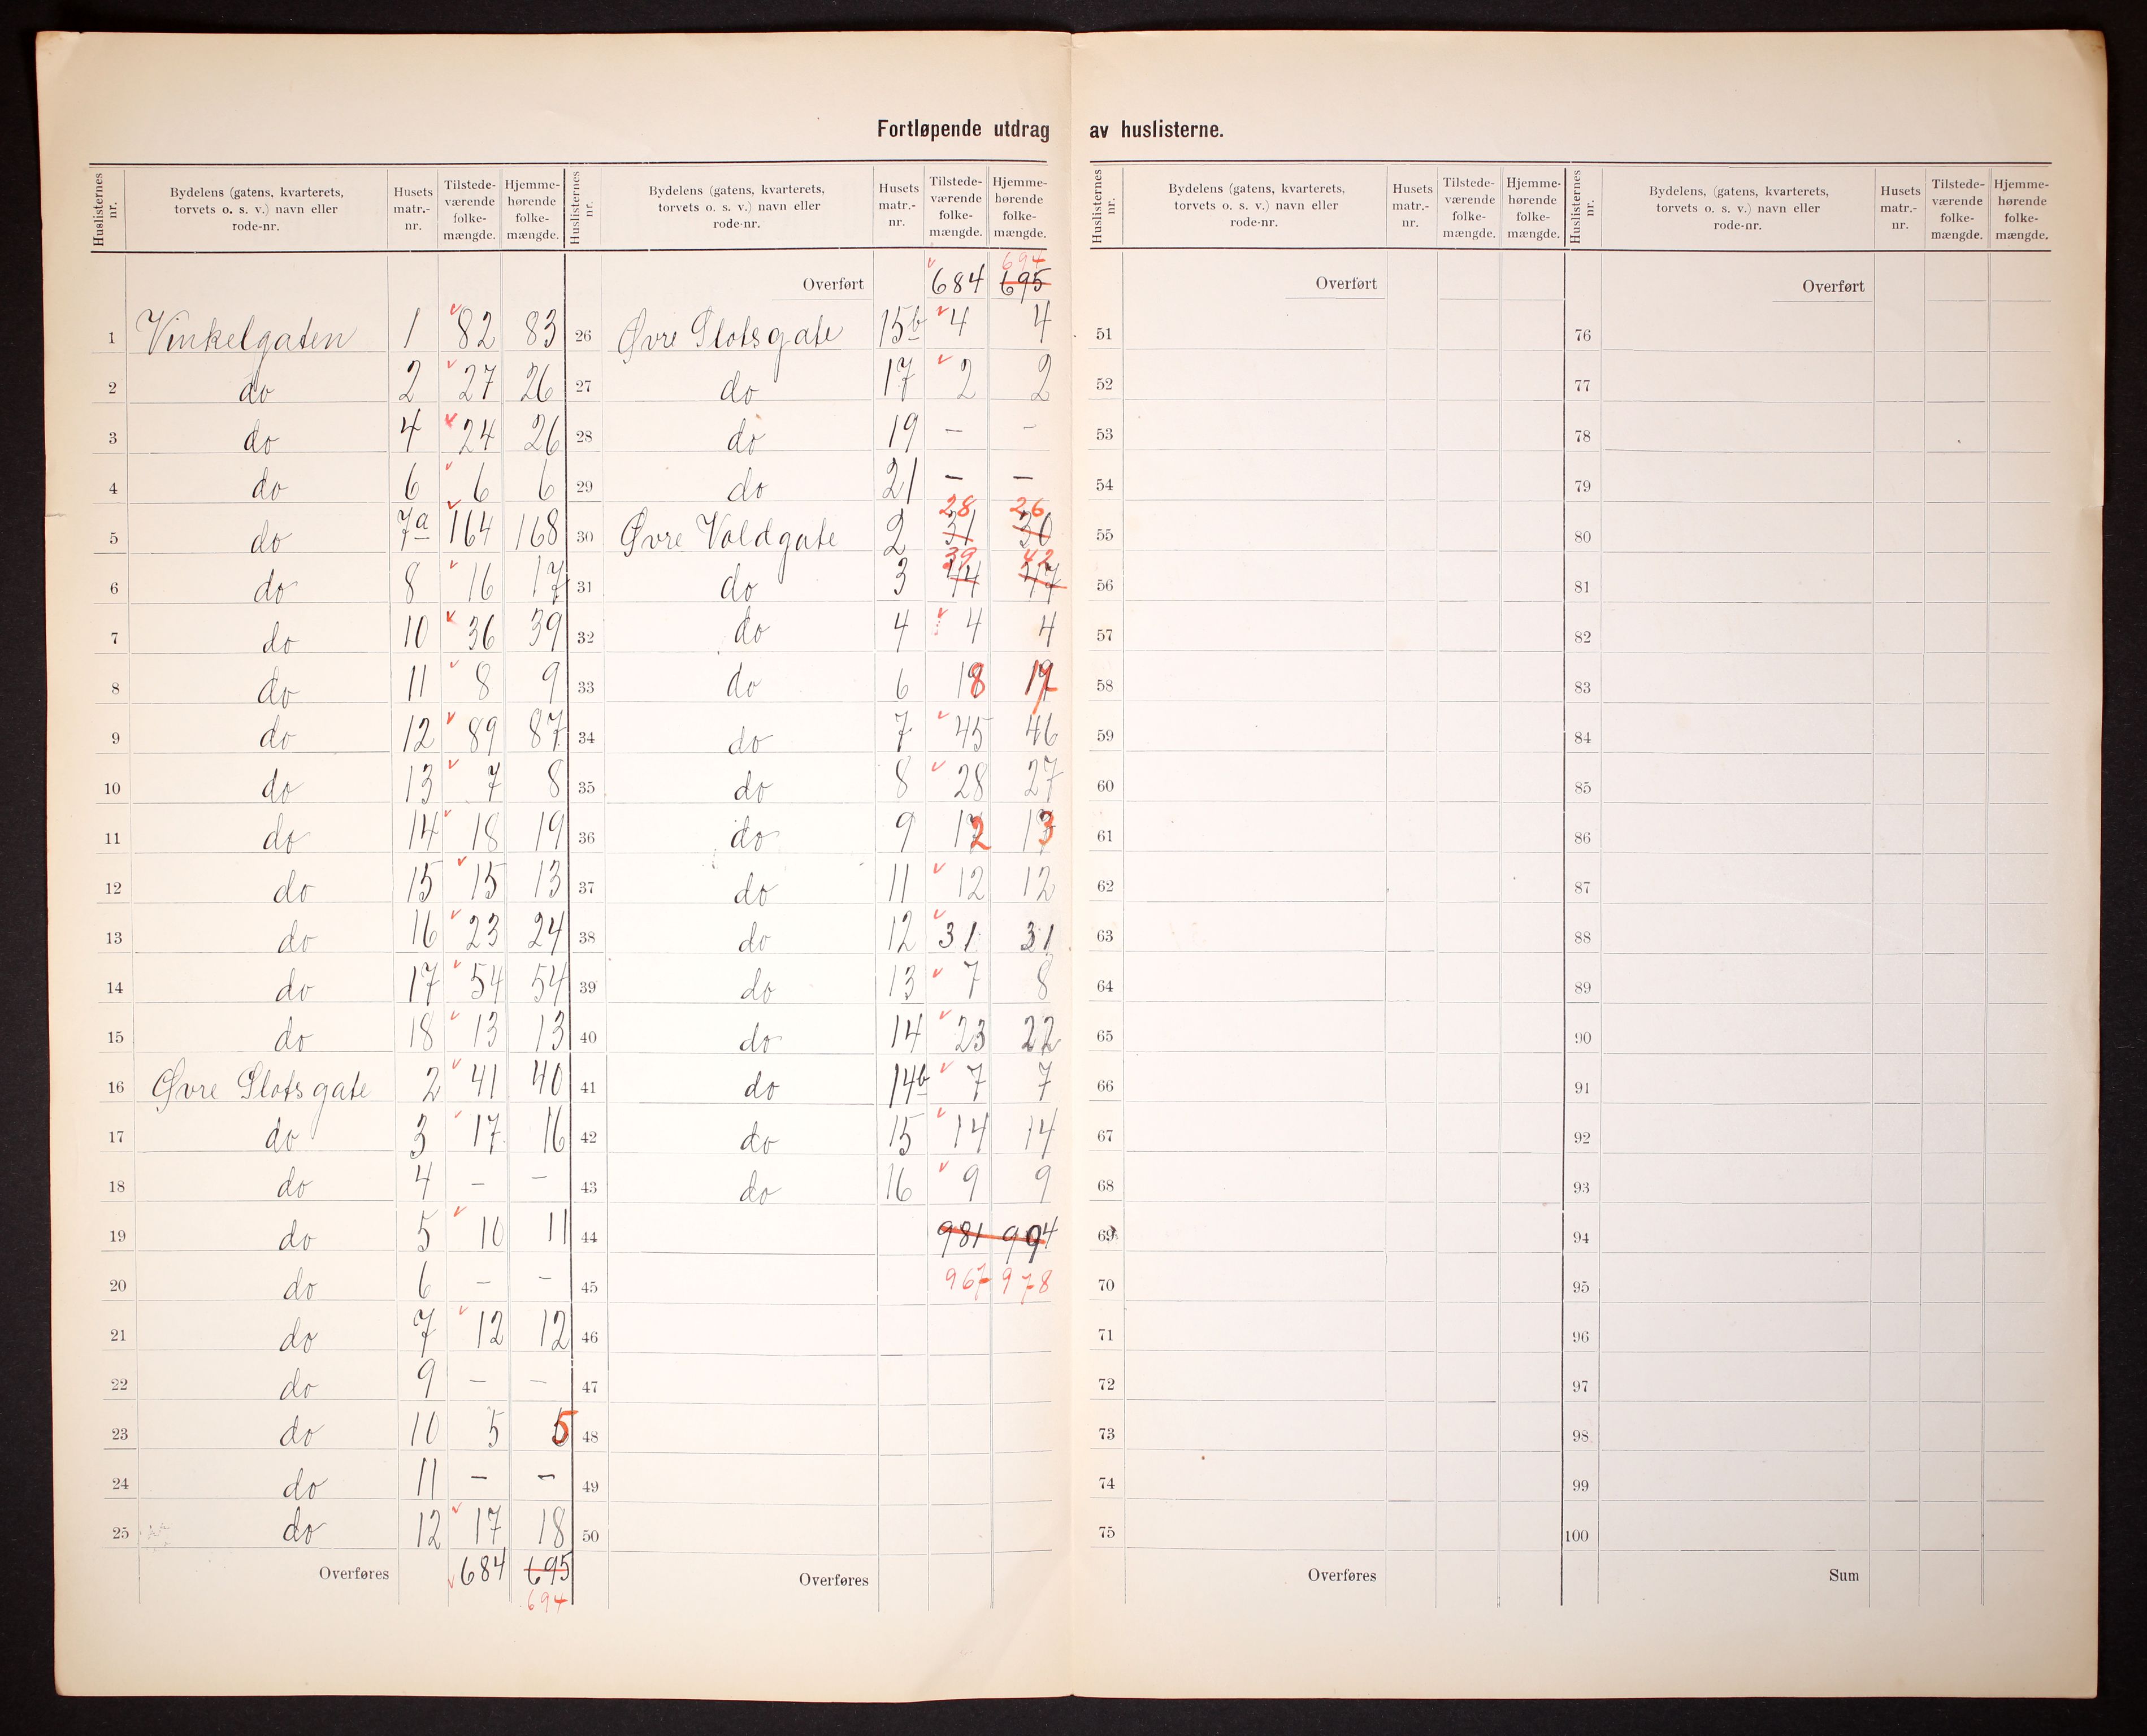 Fortløpende utdrag av huslisterne.
Huslisternes nr. | Bydelens (gatens, kvarterets, torvets o. s. v.) navn eller rode-nr. | Husets matr.-nr. | Tilstede-værende folke-mængde. | Hjemme-hørende folke-mængde.
1 Vinkelgaten 1 82 83
2 do 2 27 26
3 do 4 24 26
4 do 6 6 6
5 do 7a 164 168
6 do 8 16 17
7 do 10 36 39
8 do 11 8 9
9 do 12 89 87
10 do 13 7 8
11 do 14 18 19
12 do 15 15 13
13 do 16 23 24
14 do 17 54 54
15 do 18 13 13
16 Øvre Slotsgate 2 41 40
17 do 3 17 16
18 do 4 – –
19 do 5 10 11
20 do 6 – –
21 do 7 12 12
22 do 9 – –
23 do 10 5 5
24 do 11 – –
25 do 12 17 18
Overføres 684 695
694
Huslisternes nr. | Bydelens (gatens, kvarterets, torvets o. s. v.) navn eller rode-nr. | Husets matr.-nr. | Tilstede-værende folke-mængde. | Hjemme-hørende folke-mængde.
694
Overført 684 695
26 Øvre Slotsgate 15b 4 4
27 do 17 2 2
28 do 19 – –
29 do 21 – –
28 26
30 Øvre Voldgate 2 31 30
39 42
31 do 3 44 47
32 do 4 4 4
33 do 6 18 17
34 do 7 45 46
35 do 8 28 27
36 do 9 12 13
37 do 11 12 12
38 do 12 31 31
39 do 13 7 8
40 do 14 23 22
41 do 14b 7 7
42 do 15 14 14
43 do 16 9 9
44 981 994
45 967 978
46
47
48
49
50
Overføres
Huslisternes nr. | Bydelens (gatens, kvarterets, torvets o. s. v.) navn eller rode-nr. | Husets matr.-nr. | Tilstede-værende folke-mængde. | Hjemme-hørende folke-mængde.
Overført
51
52
53
54
55
56
57
58
59
60
61
62
63
64
65
66
67
68
69
70
71
72
73
74
75
Overføres
Huslisternes nr. | Bydelens, (gatens, kvarterets, torvets o. s. v.) navn eller rode-nr. | Husets matr.-nr. | Tilstede-værende folke-mængde. | Hjemme-hørende folke-mængde.
Overført
76
77
78
79
80
81
82
83
84
85
86
87
88
89
90
91
92
93
94
95
96
97
98
99
100
Sum